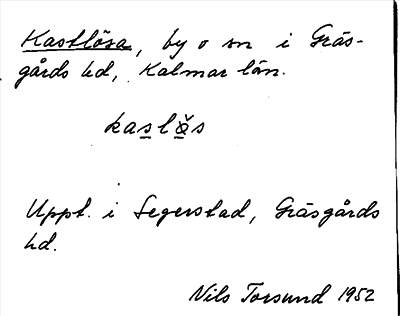 Kastlösa, by o sn i Gräs-
gårds hd, Kalmar län.
kaslös
Uppt. i Segerstad, Gräsgårds
hd.
Nils Torsund 1952